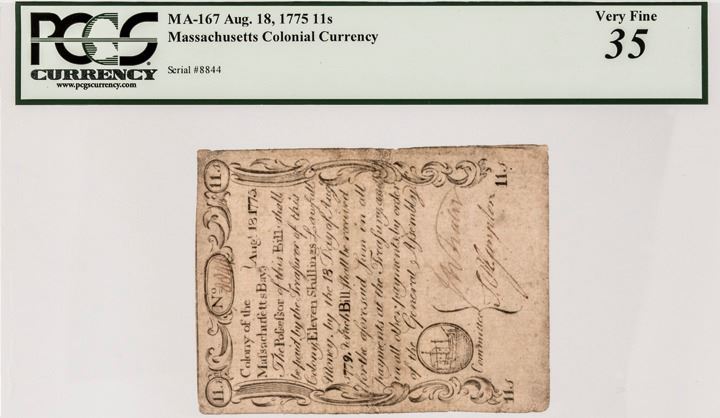 PCGS
CURRENCY
www.pcgscurrency.com
MA-167 Aug. 18, 1775 11s
Massachusetts Colonial Currency
Serial #8844
Very Fine
35
11.s
No
11.s
Colony of the
Massachusetts Bay
Augt 18.1775
The Possessor of this Bill shall
be paid by the Treasurer of this
Colony Eleven Shillings Lawfull
Money, by the 18 Day of Augt
1779. Which Bill shall be received
for the aforesaid sum in all
payments at the Treasury and
in all other payments by order
of the General Assembly
Committee
11s
11s